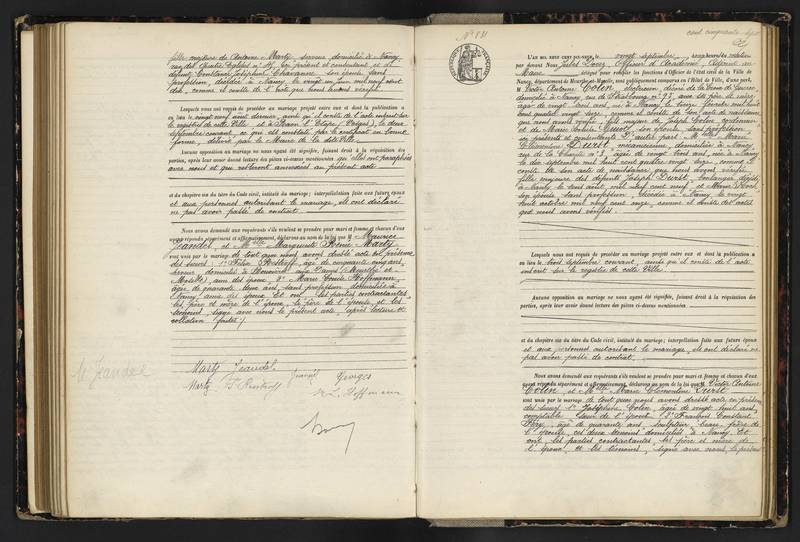 fille majeure de Antoine Marty, serrurier, domicilié à Nancy,
rue des Quatre Eglises n° 14, ici présent et consentant et de
défunte Constance Joséphine Chavanne son épouse sans
profession, décédée à Nancy, le vingt un juin mil neuf cent
dix, comme il conste de l'acte que nous avons vérifié
Lesquels nous ont requis de procéder au mariage projeté entre eux et dont la publication a
eu lieu le vingt neuf août dernier, ainsi qu'il conste de l'acte inscrit sur
le registre de cette Ville et à Raon l'Etape (Vosges), le deux
septembre courant, ce qui est constaté par le certificat en bonne
forme, délivré par le Maire de la dite Ville.
Aucune opposition au mariage ne nous ayant été signifiée, faisant droit à la réquisition des
parties, après leur avoir donné lecture des pièces ci-dessus mentionnées qu'elles ont paraphées
avec nous et qui resteront annexées au présent acte
et du chapitre six du titre du Code civil, intitulé du mariage; interpellation faite aux futurs époux
et aux personnes autorisant le mariage, ils ont déclaré
ne pas avoir passé de contrat.
Nous avons demandé aux requérants s'ils veulent se prendre pour mari et femme et chacun d'eux
ayant répondu séparément et affirmativement, déclarons au nom de la loi que M. Maurice
Jeandel et Melle Marguerite Irénie Marty
sont unis par le mariage de tout quoi nous avons dressé acte en présence
des sieurs: 1°
âge de cinquante cinq ans,
époux 2° Marie Louise Hoffmann,
âgée de quarante deux ans, sans profession domiciliée à
Nancy, amie des époux. Et ont les parties contractantes,
les père et mère de l'époux, le père de l'épouse et les
témoins, signé avec nous le présent acte, après lecture et
collation faites /.
Marty Jeandel
Marty Jeandel Georges
M. L. Hoffmann
M Jeandel
N° 831
cent cinquante sept
L'AN MIL NEUF CENT
le vingt septembre
heures du
par devant Nous Jules Officier d'Académie, Adjoint au
Maire délégué pour remplir les fonctions d'Officier de l'état civil de la Ville de
Nancy, département de Meurthe-et-Moselle, sont publiquement comparus en l'Hôtel de Ville, d'une part,
M. Victor Antoine Colin, électricien,
domicilié à Nancy, rue de Strasbourg n° 92, avec ses père et mère,
âgé de vingt trois ans, né à Nancy le treize février mil huit
cent quatre vingt sept, comme il conste de son acte de naissance
que nous avons vérifié, fils majeur de Joseph Colin
et de Marie son épouse, sans profession,
ici présents et consentants D'autre part: Melle Marie
Clémentine Durst, mécanicienne, domiciliée à Nancy
rue de la Charité n° 8, âgée de vingt trois ans, née à Nancy
le dix septembre mil huit cent quatre vingt sept, comme il
conste de son acte de naissance que nous avons vérifié
fille majeure des défunts Joseph Durst, boulanger décédé
à Nancy le
son épouse sans profession, décédée à Nancy le vingt
huit octobre mil neuf cent onze, comme il conste des actes
que nous avons vérifiés.
Lesquels nous ont requis de procéder au mariage projeté entre eux et dont la publication a
eu lieu le septembre courant, ainsi qu'il conste de l'acte
inscrit sur le registre de cette Ville.
Aucune opposition au mariage ne nous ayant été signifiée, faisant droit à la réquisition des
parties, après leur avoir donné lecture des pièces ci-dessus mentionnées
et du chapitre six du titre du Code civil, intitulé du mariage; interpellation faite aux futurs époux
et aux personnes autorisant le mariage, ils ont déclaré ne
pas avoir passé de contrat.
Nous avons demandé aux requérants s'ils veulent se prendre pour mari et femme et chacun d'eux
ayant répondu séparément et affirmativement, déclarons au nom de la loi que M. Victor Antoine
Colin, et Melle Marie Clémentine Durst
sont unis par le mariage de tout quoi nous avons dressé acte en présence
des sieurs 1° Joséphine Colin, âgée de vingt huit ans,
comptable, sœur de l'époux 2° François Constant
âgé de quarante ans, sculpteur, beau frère de
l'épouse, ces deux témoins domiciliés à Nancy. Et
ont, les parties contractantes, les père et mère de
l'époux, et les témoins, signé avec nous, le présent